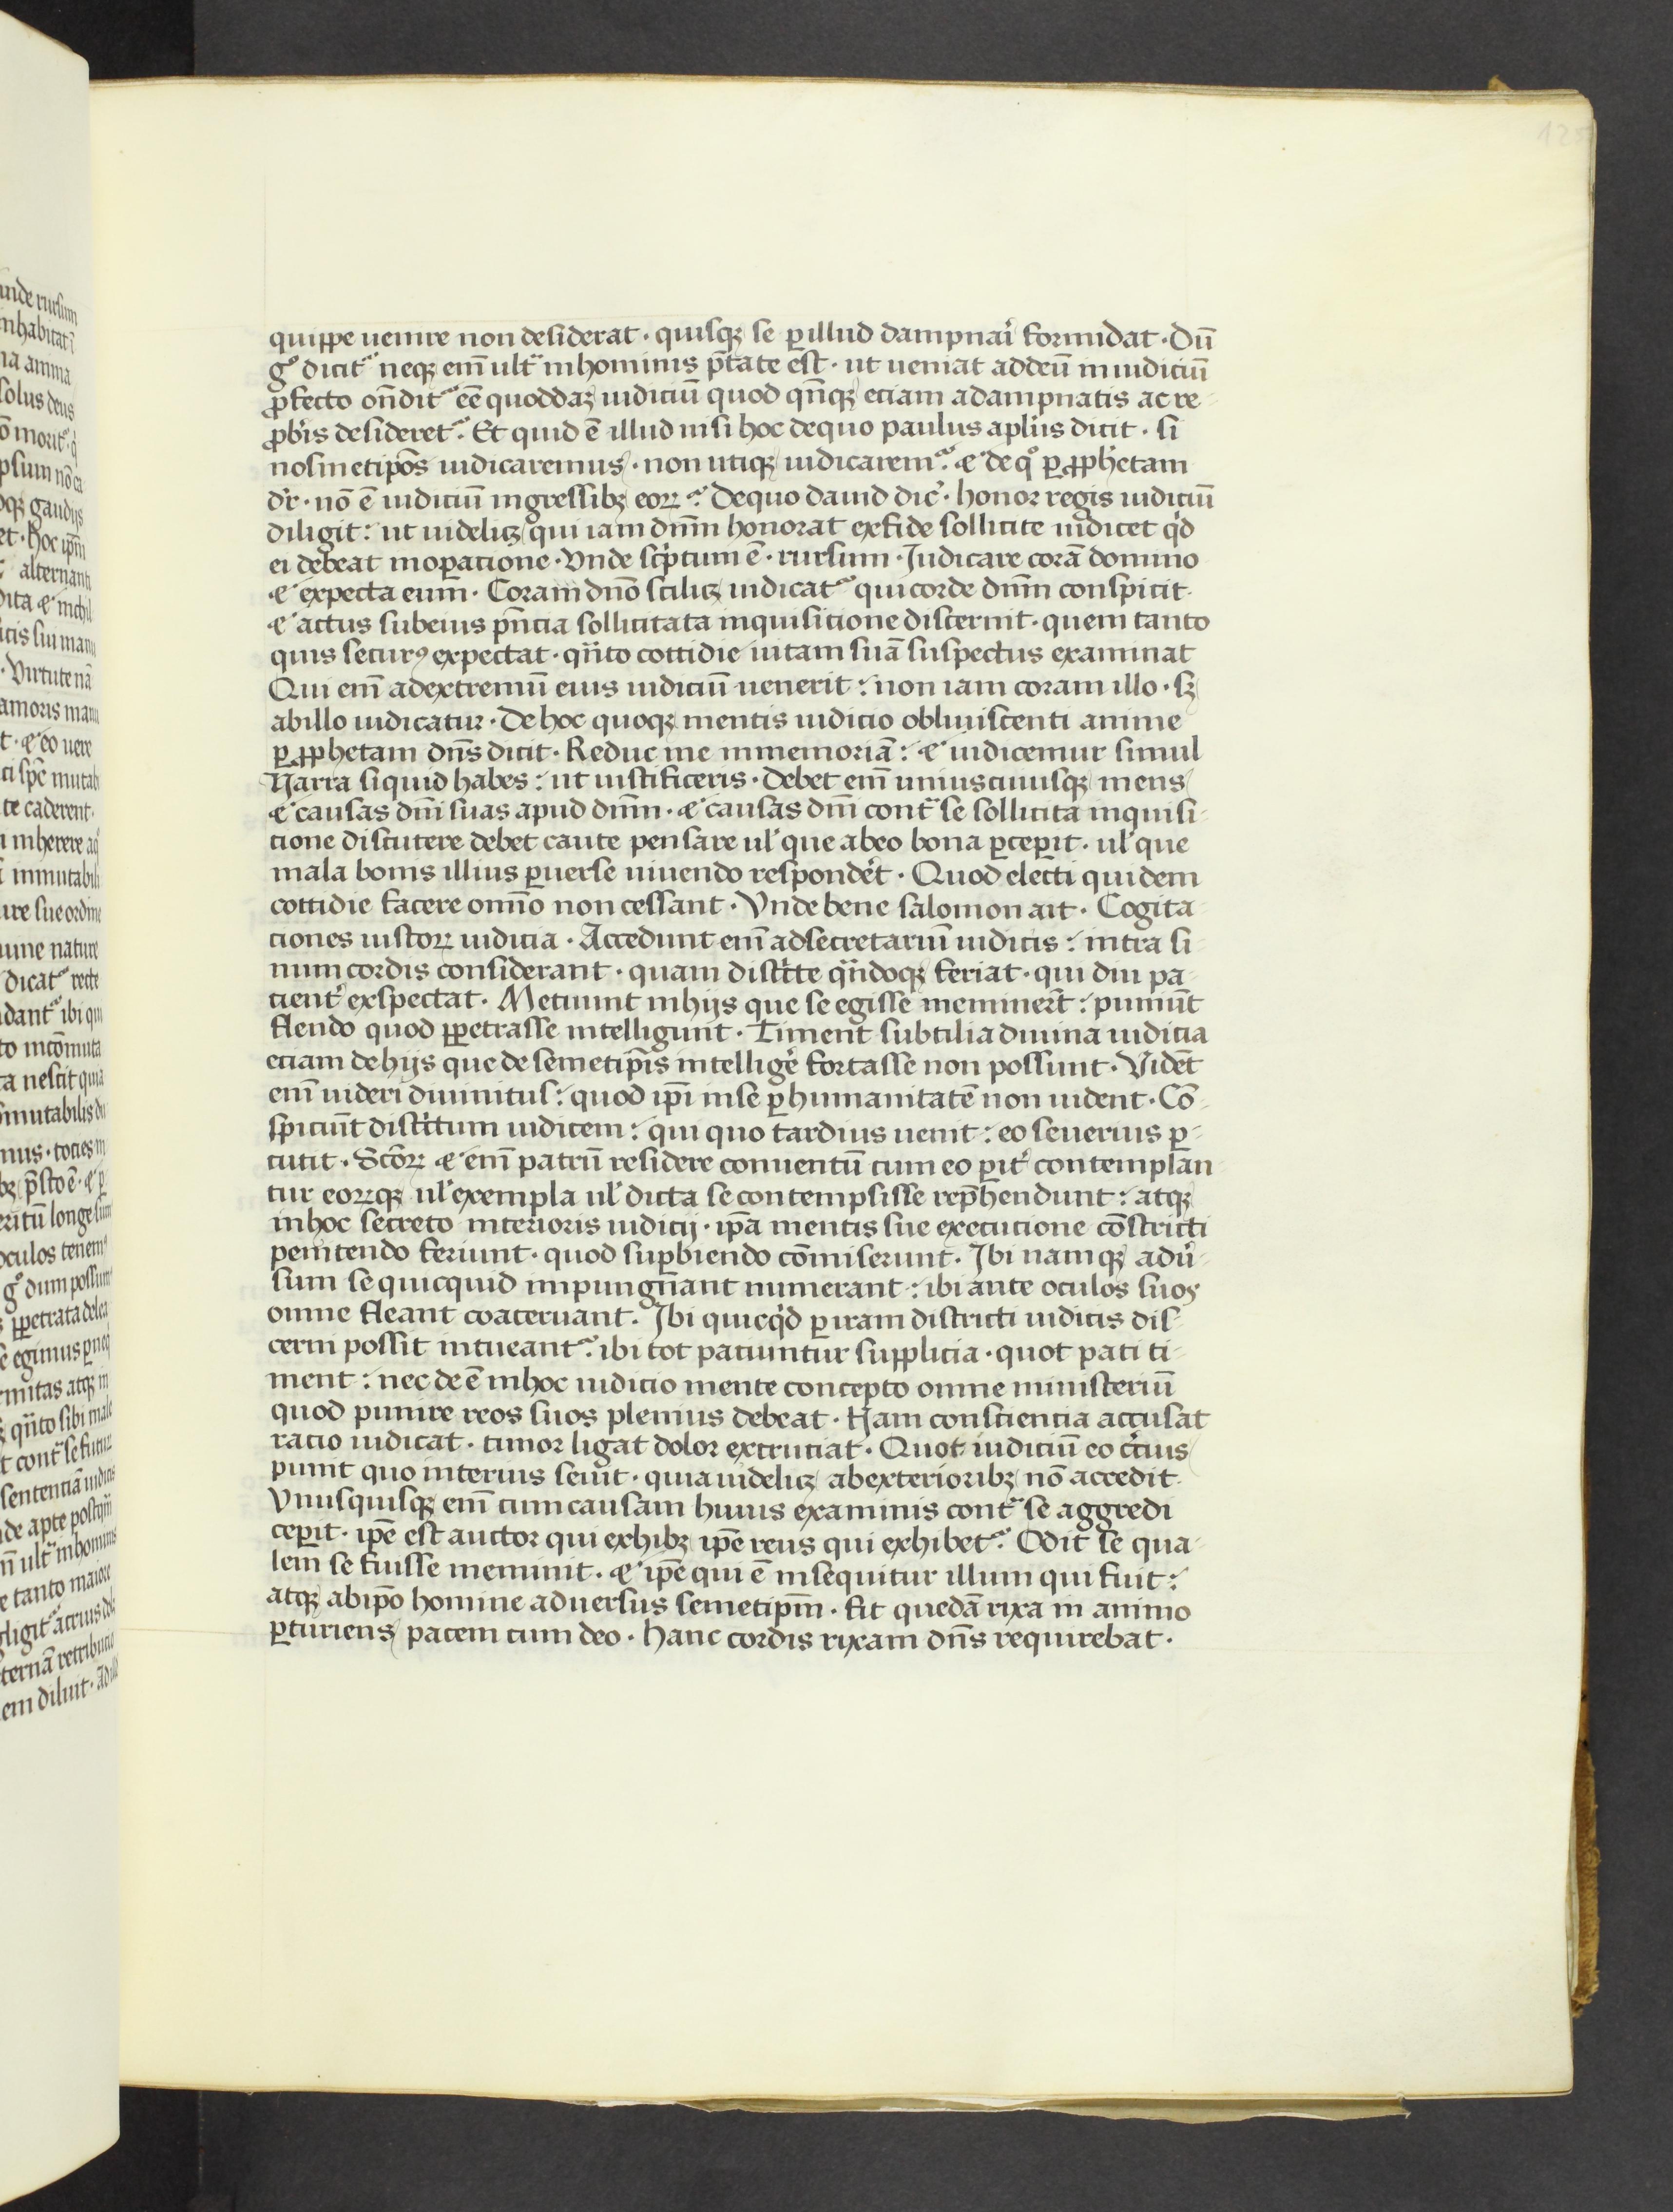 quippe uenire non desiderat · quisqꝫ se ꝑ illud dampnari formidat · Dū
gͦ dicitᷣ neqꝫ eni̅ ultᷓ in hominis p̅tate est · ut ueniat ad deū in iudiciū
ꝓfecto on̅ditᷣ ee̅ quoddaꝫ iudiciū quod qn̅qꝫ eciam a dampnatis ac re-
ꝓbis desideretᷣ. Et quid e̅ illud nisi hoc de quo paulus apl̅us dicit · si
nosmetip̅os iudicaremus · non utiqꝫ iudicaremᷣ. et de qͦ ꝑ ꝓphetam
dr̅ · no̅ e̅ iudiciū in gressibꝫ eoꝝ. De quo dauid dic̅ · honor regis iudiciū
diligit : ut uideliꝫ qui iam dn̅m honorat ex fide sollicite iudicet qͥd
ei debeat in oꝑacione · Vnde scͥptum e̅ · rursum · Judicare corā domino
et expecta eum · Coram dn̅o sciliꝫ iudicatᷣ qui corde dn̅m conspicit ·
et actus sub eius pn̅cia sollicitata inquisicione discernit · quem tanto
quis securꝰ expectat · qn̅to cottidie uitam suā suspectus examinat
Qui eni̅ ad extremū eius iudiciū uenerit : non iam coram illo · sꝫ
ab illo iudicatur · De hoc quoqꝫ mentis iudicio obliuiscenti anime
ꝑ ꝓphetam dn̅s dicit · Reduc me in memoriā : et iudicemur simul
Narra si quid habes : ut iustificeris · Debet eni̅ uniuscuiusqꝫ mens
et causas dn̅i suas apud dn̅m · et causas dn̅i contᷓ se sollicita inquisi-
cione discutere debet caute pensare ul̅ que ab eo bona ꝑceꝑit · ul̅ que
mala bonis illius ꝑuerse uiuendo responde̅t · Quod electi quidem
cottidie facere omi̅o non cessant · Vnde bene salomon ait · Cogita-
ciones iustoꝝ iudicia · Accedunt eni̅ ad secretariū iudicis : intra si-
num cordis considerant · quam distͥcte qn̅doqꝫ feriat · qui diu pa-
cient̅ exspectat · Metuunt in hijs que se egisse meminer̅t : puniūt
flendo quod ꝑpetrasse intelligunt · Timent subtilia diuina iudicia
eciam de hijs que de semetip̅is intelliger̅ fortasse non possunt · Vide̅t
eni̅ uideri diuinitus : quod ip̅i in se ꝑ humanitate̅ non uident · Co̅-
spiciūt distͥctum iudicem : qui quo tardius uenit : eo seuerius ꝑ-
cutit · Sc̅oꝝ et eni̅ patrū residere conuentū cum eo ꝑit̅ contemplan-
tur eoꝝqꝫ ul̅ exempla ul̅ dicta se contempsisse rep̅hendunt : atqꝫ
in hoc secreto interioris iudicij · ip̅a mentis sue execucione co̅stricti
penitendo feriunt · quod suꝑbiendo co̅miserunt · Jbi namqꝫ adu̅-
sum se quicquid inpungn̅ant numerant : ibi ante oculos suos
omne fleant coaceruant. Jbi quicqͥd ꝑ iram districti iudicis dis-
cerni possit intueantᷣ. ibi tot paciuntur supplicia · quot pati ti-
ment : nec dee̅ in hoc iudicio mente concepto omne ministeriū
quod punire reos suos plenius debeat · Nam consciencia accusat
racio iudicat · timor ligat dolor excruciat · Quot iudiciū eo cͥcius
punit quo interius seuit · quia uideliꝫ ab exterioribꝫ no̅ accedit ·
Vnusquisqꝫ eni̅ cum causam huius examinis contᷓ se aggredi
ceꝑit · ip̅e est auctor qui exhibꝫ ip̅e reus qui exhibetᷣ. Odit se qua-
lem se fuisse meminit · et ip̅e qui e̅ insequitur illum qui fuit :
atqꝫ ab ip̅o homine aduersus semetip̅m · fit quedā rixa in animo
ꝑturiens pacem cum deo · Hanc cordis rixam dn̅s requirebat ·